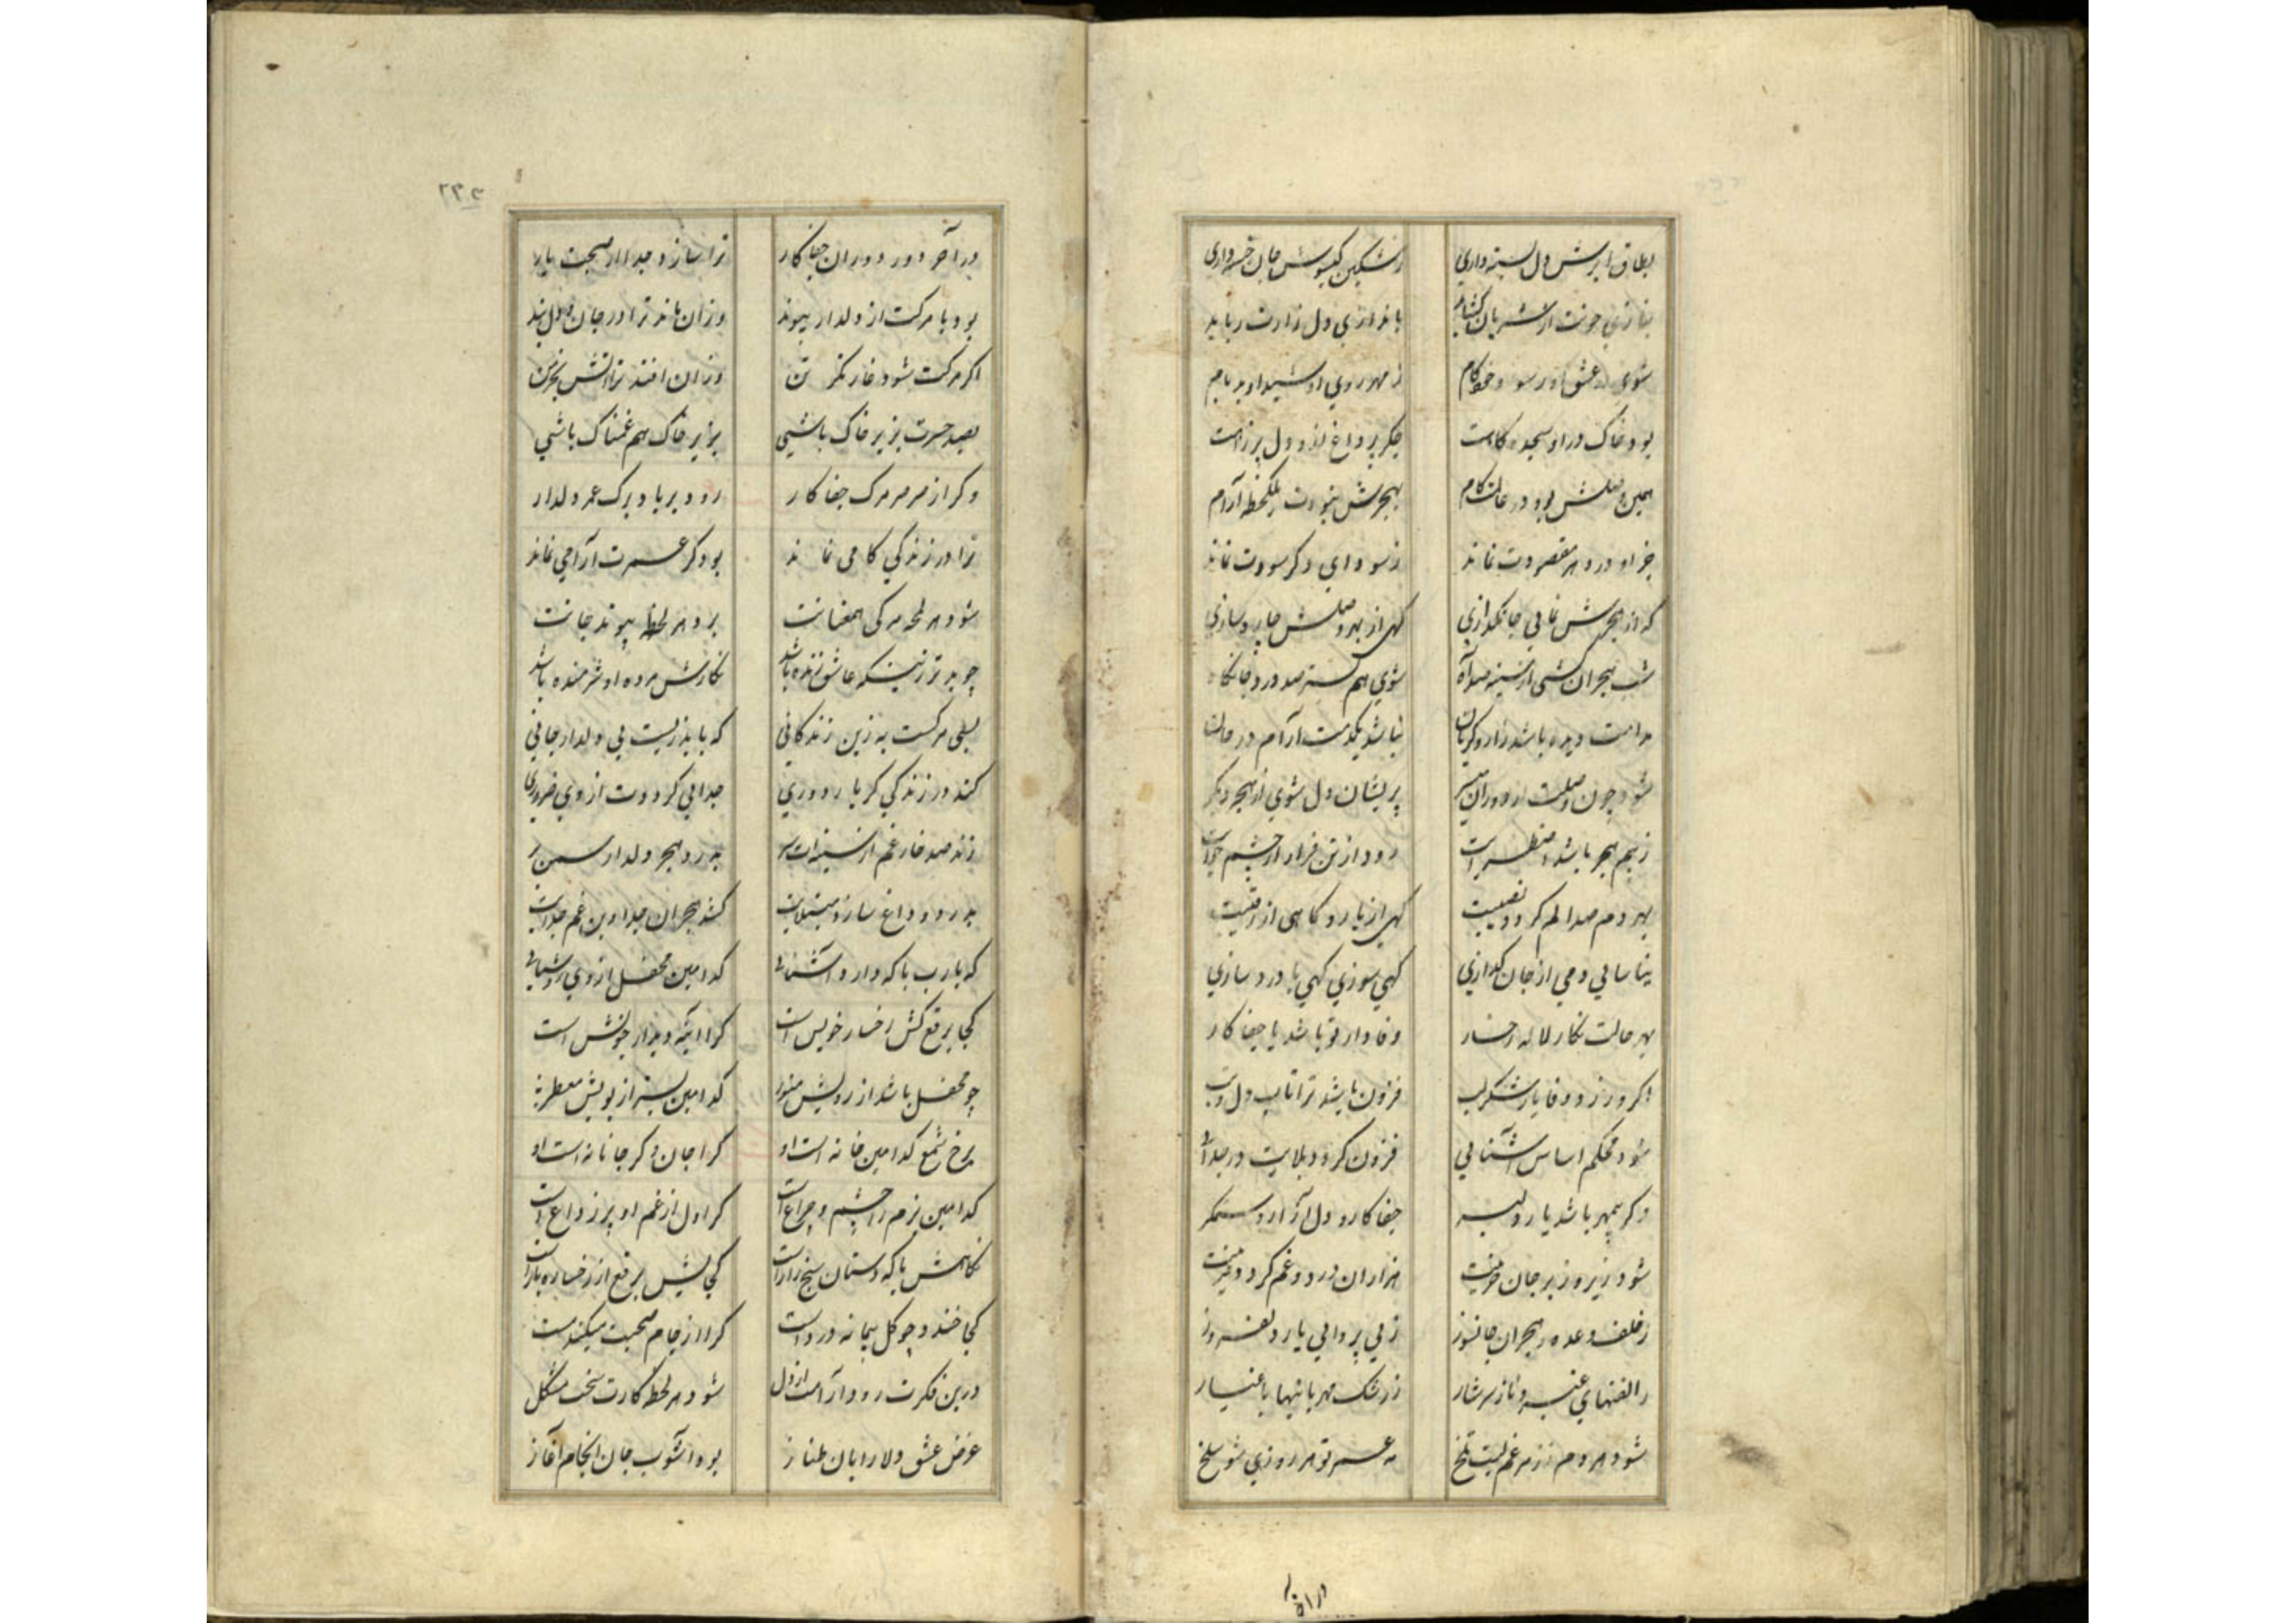 بطاق ابرش دل بسته داری
ز مشکین کیسویش جان خسته داری
باندازی دل زارت رباید
شوی در عشق او رسوا و خودکام
ز مهر روی او شیدا و بدنام
بود خاک در او سجده کاهت
جکر پر داغ از و دل پر ز آهت
همین وصلش بود در عالمت کام
بهجرش نبودت یکلحظه آرام
جز او در دهر مقصودت نماند
ز سودای دکر سودت نماند
که از هجرش نمایی جانکدازی
کهی از بهر وصلش چاره سازی
شب هجران کشی از سینه صد آه
شوی هم بستر صد درد جانکاه
مدامت دیده باشد زار و کریان
نباشد یکدمت آرام در جان
شود چون وصلت از دوران میسر
پریشان دل شوی از هجر دیکر
ز بیم هجر باشد اضطرابت
رود از تن قرار از چشم خوابت
بهر دم صد الم کردد نصیبت
کهی از یار و کاهی از رقیبت
نیاسایی دمی از جان کدازی
کهی سوزی کهی با درد سازی
بهر حالت نکار لاله رخسار
وفادار تو باشد یا جفا کار
اگر ورزد وفا یار شکر لب
فزون باشد ترا تاب دل و تب
شود محکم اساس آشنایی
فزون کردد بلایت در جدایی
وکر بیمهر باشد یار دلبر
جفا کار و دل آزار و ستمکر
شود زیر و زبر جان حزینت
هزاران درد و غم کردد قرینت
ز خلف وعده و هجران جانسوز
ز بی پروایی یار دلفروز
ز رشک مهربانیها باغیار
شود هر دم ز زهر غم لبت تلخ
مه عمر تو هر روزی شود سلخ
در آخر
در آخر دور دوران جفا کار
ترا سازد جدا از صحبت یار
بود با مرکت از دلدار پیوند
وزان ماند ترا در جان و دل بند
اکر مرکت شود غارتکر تن
وزان افتد ترا آتش بخرمن
بصد حسرت بزیر خاک باشی
بزیر خاک هم غمناک باشی
وکر از صرصر مرک جفا کار
رود بر باد برک عمر دلدار
ترا در زندکی کامی نماند
بود کر عمرت آرامی نماند
شود هر لمحه مرکی همعنانت
برد هر لحظه پیوند جانت
چو بدتر زینکه عاشق زنده باشد
نکارش مرده او شرمنده باشد
بسی مرکست به زین زندکانی
که باید زیست بی دلدار جانی
کند در زندکی کر یار دوری
جدایی کرددت از وی ضروری
زند صد خار غم از سینه ات سر
بدرد هجر دلدار سمن بر
بدرد و داغ سازد مبتلایت
کشد هجران جدا وین غم جدایت
که یارب با که دارد آشنایی
کدامین محفل از وی روشنایی
کجا برقع کش رخسار خویش است
کرا آیینه دیدار خویش است
چو محفل باشد از رویش منور
کدامین بستر از بویش معطر
برخ شمع کدامین خانه است او
کرا جان و کر جانانه است او
کدامین بزم را چشم و چراغست
کرا دل از غم او پر ز داغ است
کجایش برقع از رخساره بازست
کجا خندد چو کل پیمانه در دست
کرا از جام محبت میکند مست
درین فکرت رود آرامت از دل
شود هر لحظه کارت سخت مشکل
غرض عشق دلارایان طناز
بود آشوب جان انجام آغاز